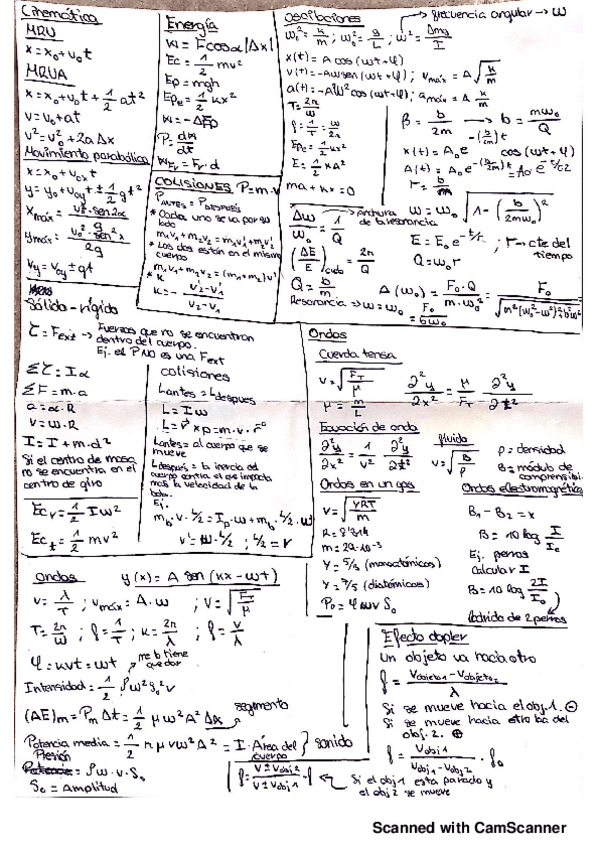 Cinemática
MRU
x = x₀ + v₀t
MRUA
x = x₀ + v₀t + 1/2 at²
v = v₀ + at
v² = v₀² + 2aΔx
Movimiento parabólico
x = x₀ + v₀t
y = y₀ + v₀y t ± 1/2 gt²
Xmáx = v₀² · sen2α / g
ymáx = v₀² · sen²α / 2g
vy = v₀y ± gt
Energía
W = F cosα |Δx|
Ec = 1/2 mv²
Ep = mgh
Epe = 1/2 kx²
W = -ΔEp
P = dW/dt
WFr = Fr · d
COLISIONES P = m·v
Pantes = Pdespués
* Cada uno se va por su
lado
m₁v₁ + m₂v₂ = m₁v₁' + m₂v₂'
* Los dos están en el mismo
cuerpo
m₁v₁ + m₂v₂ = (m₁+m₂)v'
* K
K = - v₂' - v₁' / v₂ - v₁
Oscilaciones
frecuencia angular → ω
ω₀² = k/m ; ω₀² = g/L ; ω² = Dmg/I
x(t) = A cos(ωt+φ)
v(t) = -Aω sen(ωt+φ) ; vmáx = A √k/m
a(t) = -Aω² cos(ωt+φ) ; amáx = A k/m
T = 2π/ω
f = 1/T = ω/2π
Epe = 1/2 kx²
E = 1/2 kA²
ma + kx = 0
β = b/2m → b = mω₀/Q
x(t) = A₀e^-(b/2m)t cos(ωt+φ)
A(t) = A₀e^-(b/2m)t = A₀ e^-t/τ2
Δω/ω₀ = 1/Q → Anchura
de la resonancia
ω = ω₀ √1 - (b/2mω₀)²
(ΔE/E)ciclo = 2π/Q
E = E₀e^-t/τ ; τ → cte del
tiempo
Q = ω₀τ
A(ω₀) = F₀·Q / m·ω₀² = F₀ / bω₀
Resonancia → ω = ω₀
Sólido-rígido
τ = Fext → Fuerzas que no se encuentran
dentro del cuerpo.
Ej. el P NO es una Fext
Στ = Iα
ΣF = m·a
a = α·R
v = ω·R
I = I + m·d²
Si el centro de masa
no se encuentra en el
centro de giro
Ecr = 1/2 Iω²
Ect = 1/2 mv²
colisiones
Lantes = Ldespués
L = Iω
Lantes = al cuerpo que se
mueve
Ldespués = la inercia del
cuerpo contra el que impacta
más la velocidad de la
bola.
Ej.
Ondas
Cuerda tensa
v = √FT/μ
μ = m/L
∂²y/∂x² = μ/FT ∂²y/∂t²
Ecuación de onda
∂²y/∂x² = 1/v² ∂²y/∂t²
fluido
v = √B/ρ
ρ = densidad
B = módulo de
Ondas en un gas
v = √γRT/m
R = 8'314
m = 29·10⁻³
γ = 5/3 (monoatómicos)
γ = 7/5 (diatómicos)
P₀ = ρωv S₀
Ondas electromagnéticas
B₁ - B₂ = x
B = 10 log I/I₀
Ej. perros
Calcular I
B = 10 log 2I/I₀
ladrido de 2 perros
Ondas y(x) = A sen(kx-ωt)
v = λ/T ; vmáx = A·ω ; v = √FT/μ
T = 2π/ω ; f = 1/T ; k = 2π/λ ; f = v/λ
φ = kvt = ωt
me lo tiene
que dar
Intensidad = 1/2 ρω²S₀²v
(ΔE)m = PmΔt = 1/2 μω²A²Δx
segmento
Potencia media = 1/2 μvω²A² = I·Área del
cuerpo
sonido
Presión
= ρω·v·S₀
S₀ = Amplitud
Efecto dopler
Un objeto va hacia otro
f = Vobjeto1 - Vobjeto2 / λ
Si se mueve hacia el obj.1. ⊖
Si se mueve hacia
obj.2. ⊕
f = Vobj1 / Vobj1 - Vobj2 · f₀
f = v ± Vobj2 / v ± Vobj1 · f
Si el obj1 está parado y
el obj2 se mueve
Scanned with CamScanner